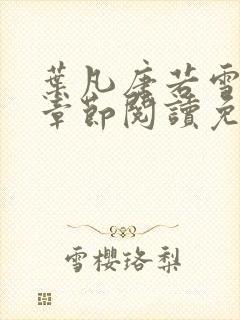 葉凡唐若雪
章節閱讀免
雪櫻珞梨